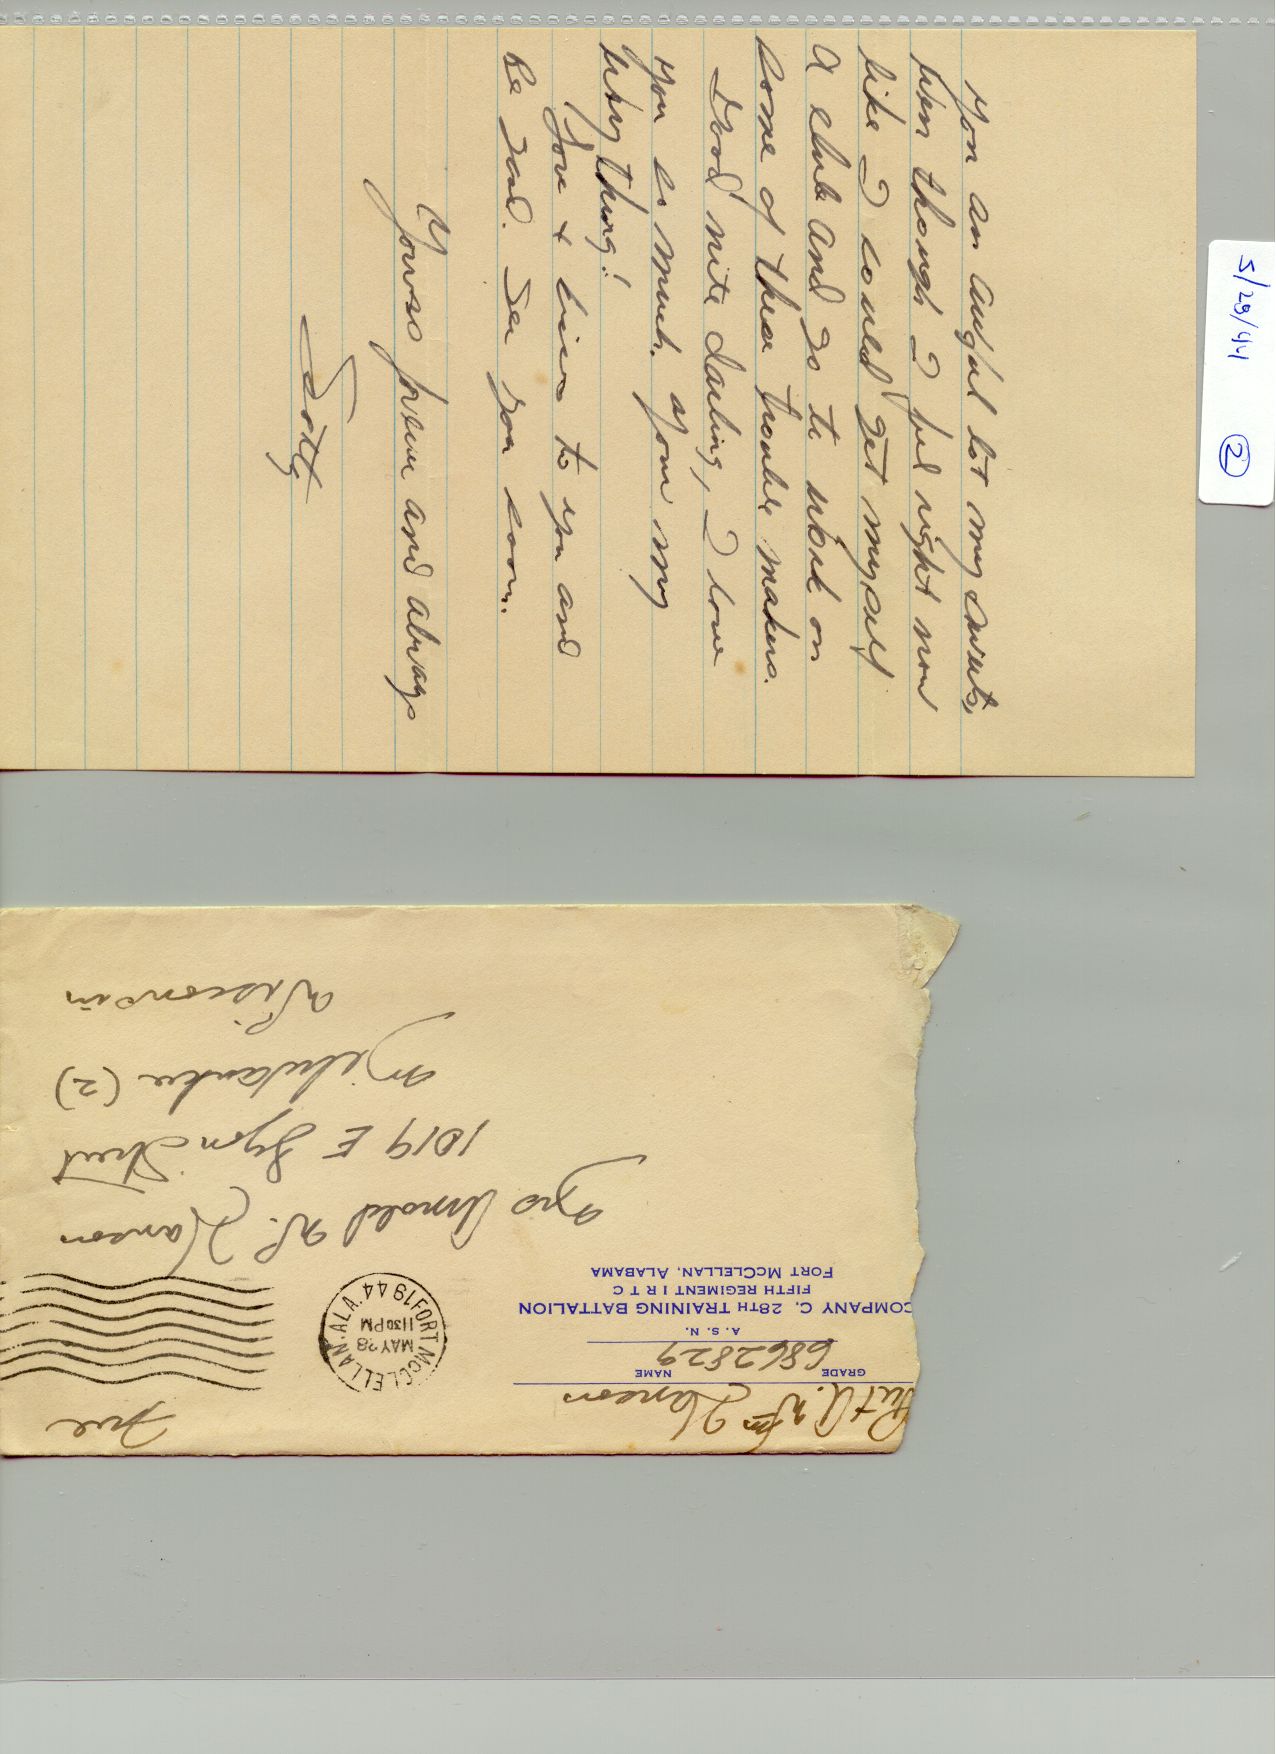 5/28/44 2
you an awful lot my sweets,
Even though I feel right now
like I could get myself
a club and go to work on
some of these trouble makers.
Good nite darling, I love
you so much. Your my
Everything!
Love & kisses to you and
be good. See you soon.
Yours forever and always
Scotty
Pvt A. Wm Hanson
GRADE NAME
6862829
A. S. N.
COMPANY C, 28TH TRAINING BATTALION
FIFTH REGIMENT I R T C
FORT MCCLELLAN, ALABAMA
Free
FORT MCCLELLAN, ALA. 1944
MAY 28
1130 PM
Mrs Arnold W. Hanson
1019 E Lyon Street
Milwaukee (2)
Wisconsin